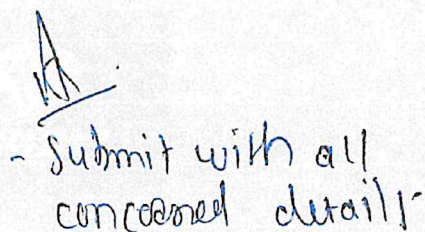 - Submit with all
concerned details